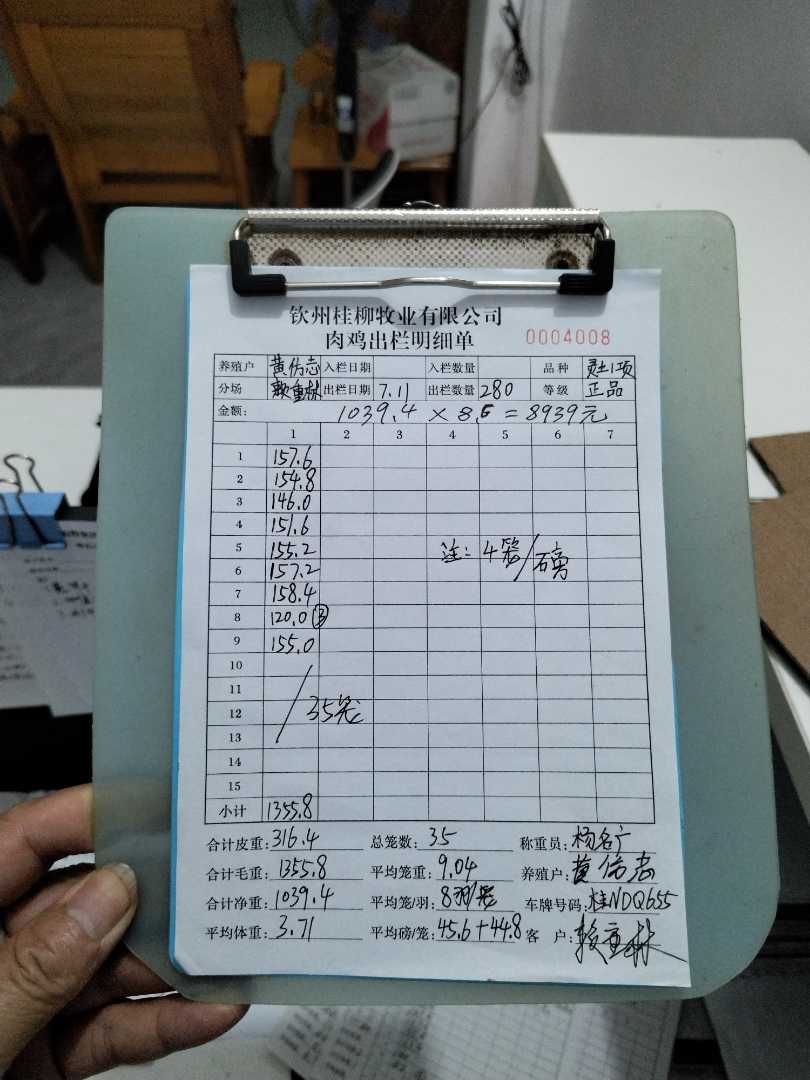 钦州桂柳牧业有限公司
肉鸡出栏明细单 0004008
养殖户 黄伤志 入栏日期 入栏数量 品种 灵土1项
分场 出栏日期 7.11 出栏数量 280 等级 正品
金额: 1039.4 × 8.6 = 8939元
1 2 3 4 5 6 7
1 157.6
2 154.8
3 146.0
4 151.6
5 155.2 注: 4笼/磅
6 157.2
7 158.4
8 120.0 ③
9 155.0
10
11
12 / 35笼
13
14
15
小计 1355.8
合计皮重: 316.4 总笼数: 35 称重员: 杨名广
合计毛重: 1355.8 平均笼重: 9.04 养殖户: 黄伤志
合计净重: 1039.4 平均笼/羽: 8羽/笼 车牌号码: 桂NDQ655
平均体重: 3.71 平均磅/笼: 45.6+44.8 客户: